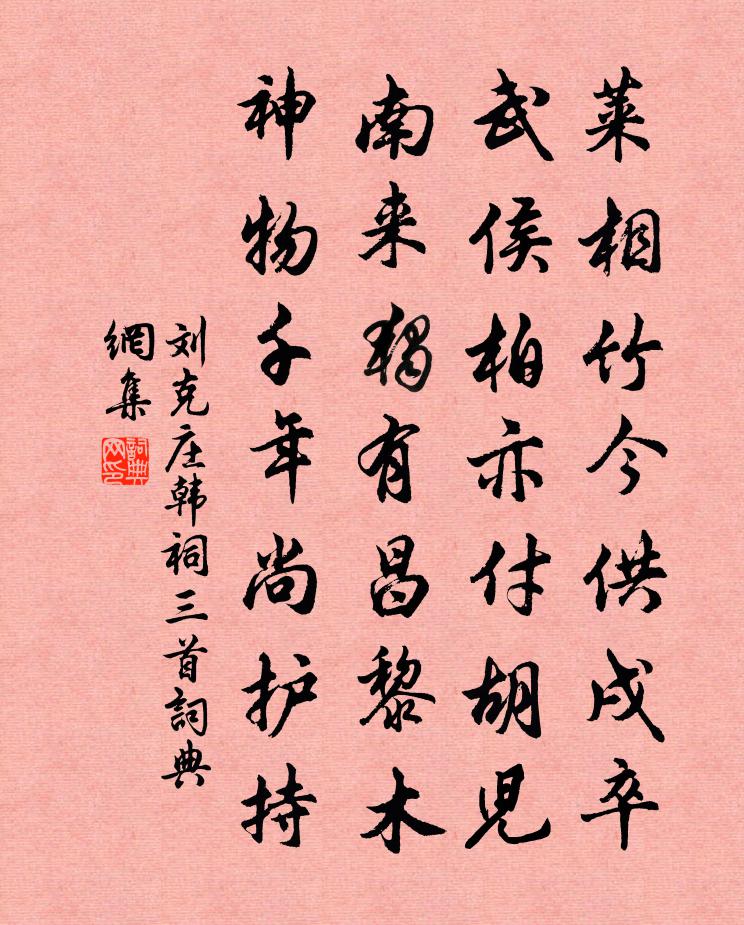 莱相竹今供戍卒
武侯柏亦付胡兒
南来獨有昌黎木
神物千年尚护持
刘克庄韩祠三首詞典
網集
詞典
网印